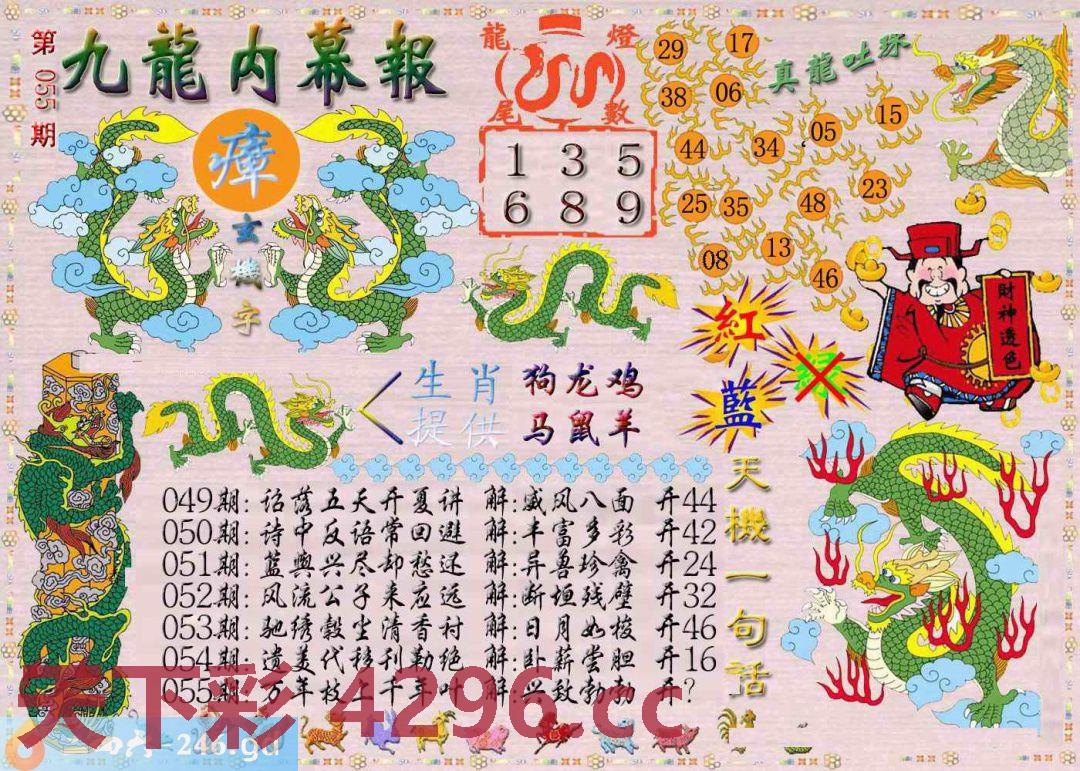 第055期
九龍内幕報
瘴
玄機字
龍燈
尾數
1 3 5
6 8 9
真龍吐珠
29 17
38 06
44 34 05 15
25 35 48 23
08 13 46
財神透色
紅
藍
绿
生肖 狗龙鸡
提供 马鼠羊
天機一句话
049期: 诏落五天开夏讲 解:威风八面 开44
050期: 诗中反语常回避 解:丰富多彩 开42
051期: 蓝舆兴尽却愁还 解:异兽珍禽 开24
052期: 风流公子来应远 解:断垣残壁 开32
053期: 驰绣毂尘清香衬 解:日月如梭 开46
054期: 遗美代移刊勒绝 解:卧薪尝胆 开16
055期: 万年枝上千年叶 解:兴致勃勃 开?
天下彩 4296.cc
246.gd